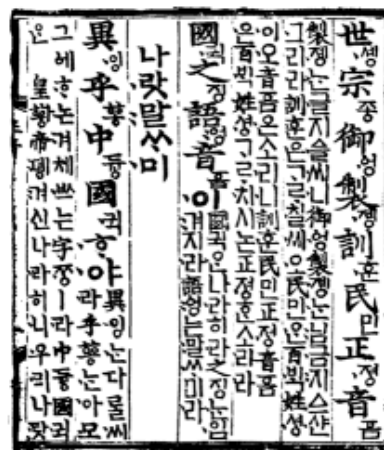 世솅宗종御엉製졩訓훈民민正정音ᅙᅳᆷ
製졩는글지ᅀᅳᆯ씨니御엉製졩는님금지ᅀᅳ샨
그리라訓훈은ᄀᆞᄅᆞ칠씨오民민ᄋᆞᆫ百ᄇᆡᆨ姓셩
이오音ᅙᅳᆷ은소리니訓훈民민正정音ᅙᅳᆷ
은百ᄇᆡᆨ姓셩ᄀᆞᄅᆞ치시논正정ᄒᆞᆫ소리라
國귁之징語ᅌᅥᆼ音ᅙᅳᆷ이
國귁ᄋᆞᆫ나라히라之징ᄂᆞᆫ입
겨지라語ᅌᅥᆼ는말ᄊᆞ미라
나랏말ᄊᆞ미
異잉乎ᅘᅩᆼ中듀ᇰ國귁ᄒᆞ야
異잉ᄂᆞᆫ다ᄅᆞᆯ씨
라乎ᅘᅩᆼᄂᆞᆫ아모
그ᅌᅦᄒᆞ논겨체ᄡᅳ는字ᄍᆞᆼㅣ라中듀ᇰ國귁
ᄋᆞᆫ皇ᅘᅪᇰ帝뎽겨신나라히니우리나랏